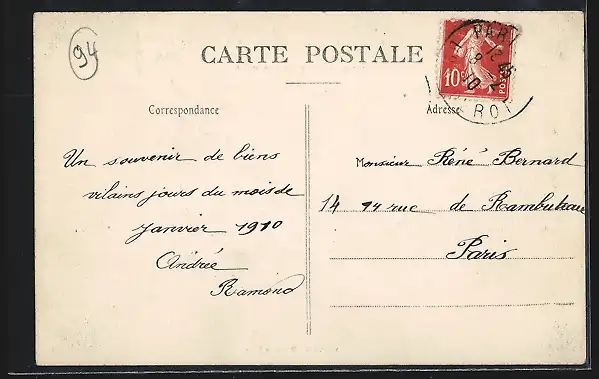 94
CARTE POSTALE
10 POSTES
PARI
ROI
Correspondance
Adresse
Un souvenir de biens
vilains jours du mois de
Janvier 1910
Andrée
Ramond
Monsieur René Bernard
14 rue de Rambuteau
Paris